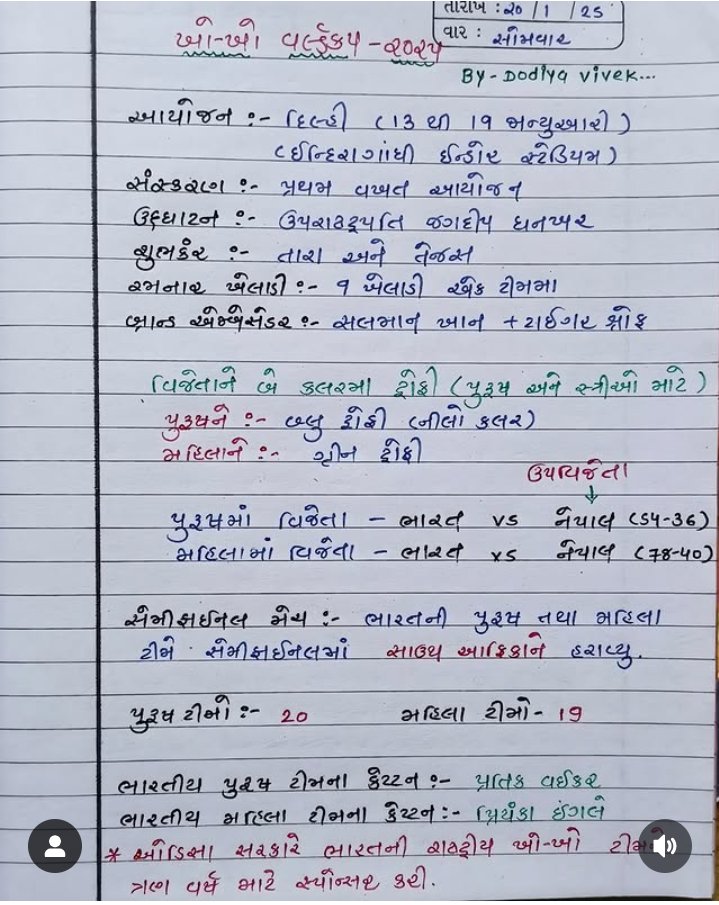 તારીખ : ૨૦ / 1 / 25
વાર : સોમવાર
ખો-ખો વર્લ્ડકપ - ૨૦૨૫
By - Dodiya Vivek...
આયોજન :- દિલ્હી (13 થી 19 જાન્યુઆરી)
(ઈન્દિરાગાંધી ઈન્ડોર સ્ટેડિયમ)
સંસ્કરણ :- પ્રથમ વખત આયોજન
ઉદ્દઘાટન :- ઉપરાષ્ટ્રપતિ જગદીપ ધનખર
શુભંકર :- તારા અને તેજસ
રમનાર ખેલાડી :- ૧ ખેલાડી એક ટીમમા
બ્રાન્ડ એમ્બેસેડર :- સલમાન ખાન + ટાઈગર શ્રોફ
વિજેતાને બે કલરમા ટ્રોફી (પુરૂષ અને સ્ત્રીઓ માટે)
પુરૂષને :- બ્લુ ટ્રોફી (નીલો કલર)
મહિલાને :- ગ્રીન ટ્રોફી
ઉપવિજેતા
પુરૂષમાં વિજેતા - ભારત vs નેપાલ (54-36)
મહિલામાં વિજેતા - ભારત vs નેપાલ (78-40)
સેમીફાઈનલ મેચ :- ભારતની પુરૂષ તથા મહિલા
ટીમે સેમીફાઈનલમાં સાઉથ આફ્રિકાને હરાવ્યુ.
પુરૂષ ટીમો :- 20 મહિલા ટીમો - 19
ભારતીય પુરૂષ ટીમના કેપ્ટન :- પ્રતિક વાઈકર
ભારતીય મહિલા ટીમના કેપ્ટન :- પ્રિયંકા ઇંગલે
* ઓડિસા સરકારે ભારતની રાષ્ટ્રીય ખો-ખો
ત્રણ વર્ષ માટે સ્પોન્સર કરી.